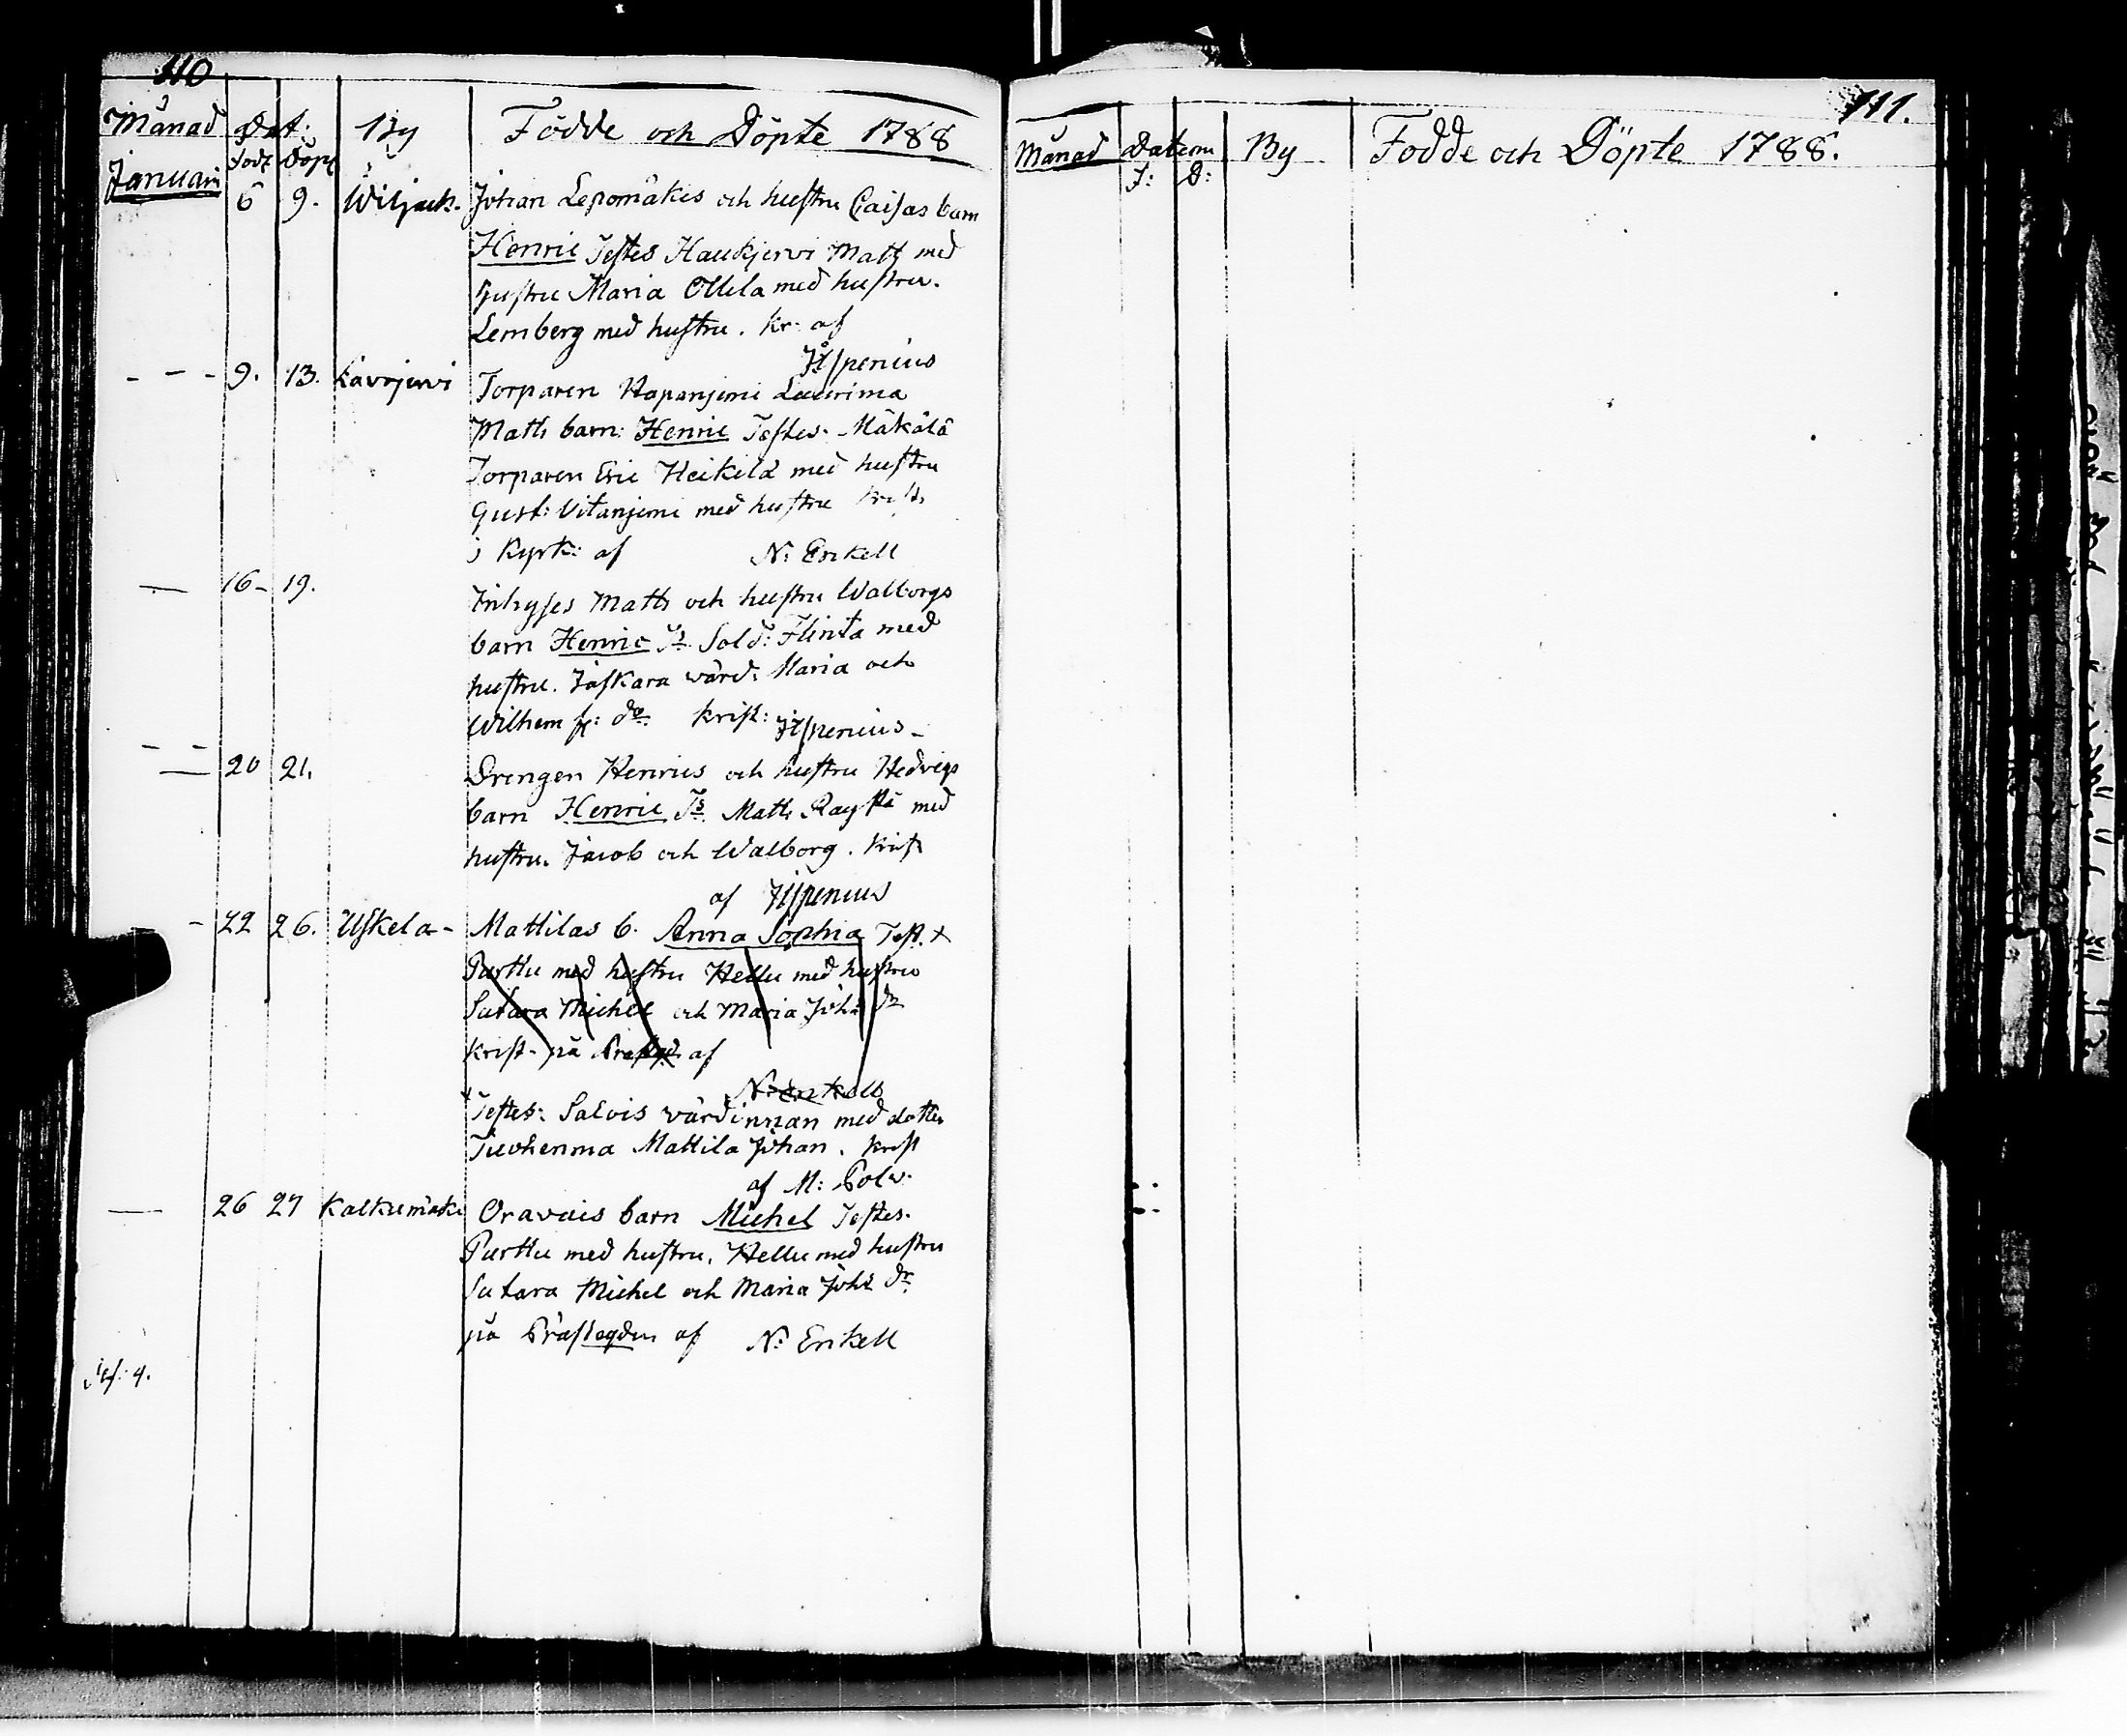 110
Månad Dat: By Födde och Döpte 1788
Född Döpt
Januari 6 9. Wiljack. Johan Lepomäkis och hustru Caisas barn
Henric Testes Haukjervi Matts med
hustru Maria Ollila med hustru.
Lemberg med hustru. kr: af
Håspenius
- - - 9. 13. Kavojervi Torparen Hapanjemi
Matts barn: Henric Testes. Mäkälä
Torparen Eric Heikilä med hustru
Gust: Vitanjemi med hustru
i Kyrk: af N: Enkell
— 16- 19. Inhyses Matts och hustru Walborgs
barn Henric Ts Sold: Flinta med
hustru. Jåskara värd: Maria och
Wilhem do krist: Håspenius -
— 20 21. Drengen Henrics och hustru Hedvigs
barn Henric Ts. Matts med
hustru. Jacob och Walborg. krist
af Håspenius
- 22 26. Uskela - Mattilas b. Anna Sophia Test. +
Purttu med hustru Hellu med hustru
Sutara Michel och Maria Johs dr
krist- på af
N: Enkell
+ Testes: Salvis värdinnan med dotter
Mattila Johan. krist
af M: Polv.
— 26 27 Kalkumäki Oravais barn Michel Testes.
Purttu med hustru. Hellu med hustru
Sutara Michel och Maria Johs dr
på Prästegden af N: Enkell
111.
Månad Datum By Födde och Döpte 1788.
F: D: